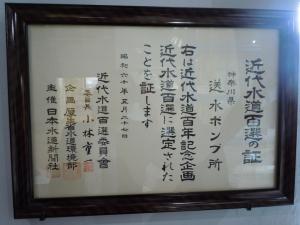 近代水道百選の証
神奈川県
送水ポンプ所
右は近代水道百年記念企画
近代水道百選に選定された
ことを証します
昭和六十年五月二十七日
近代水道百選委員会
委員長 小林重一
企画 厚生省水道環境部
主催 日本水道新聞社